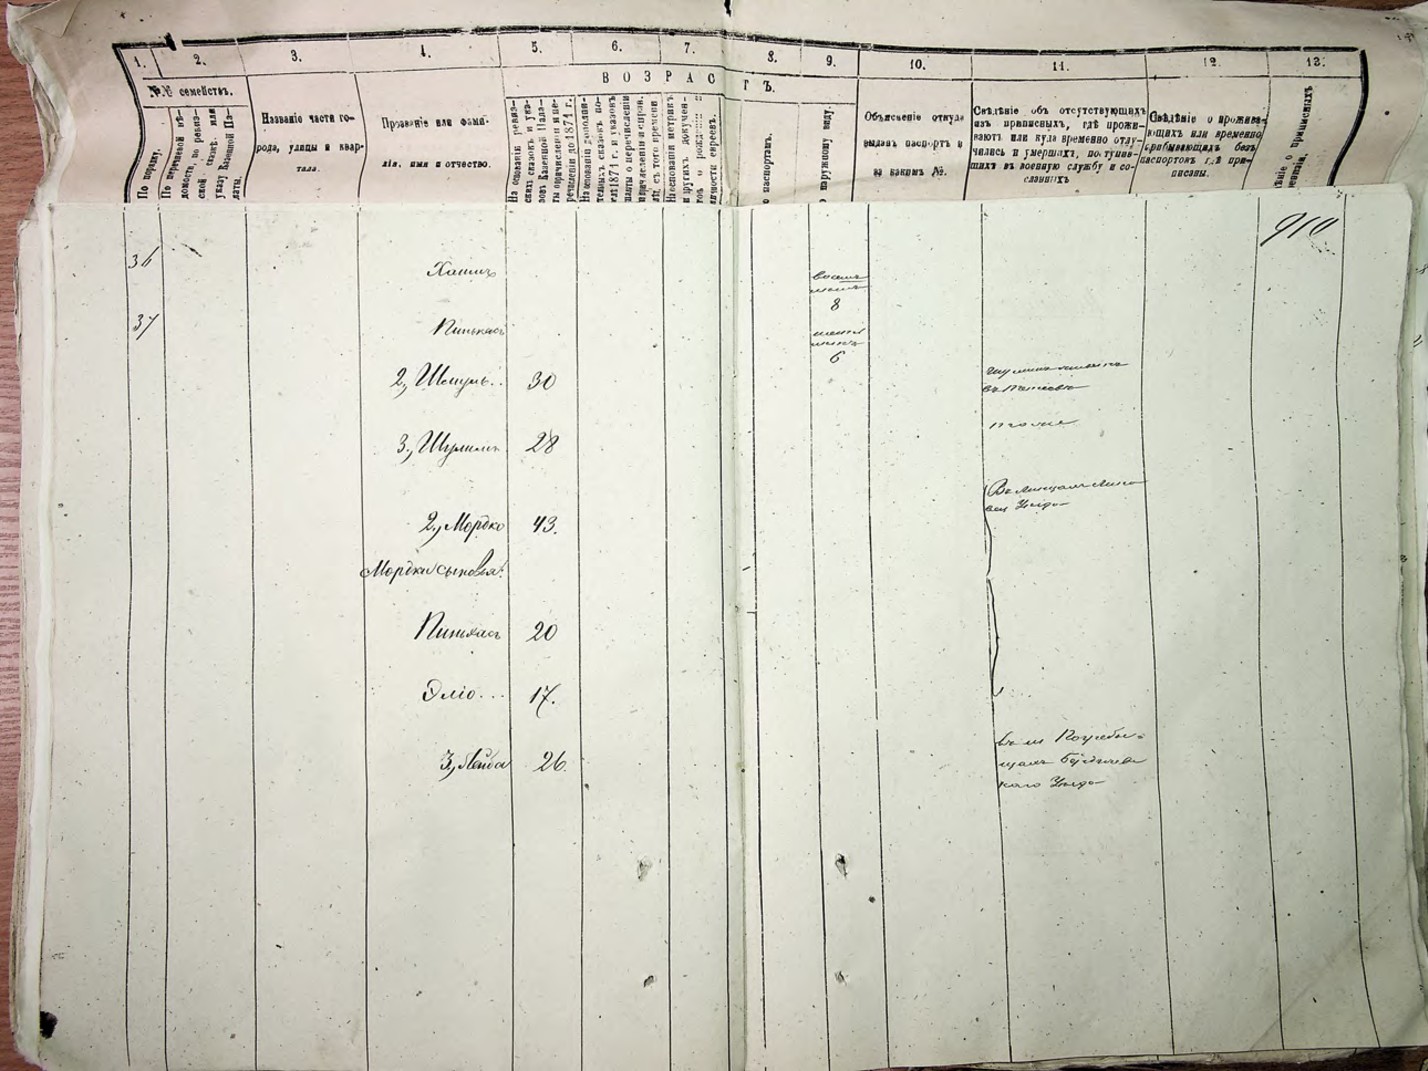 1. 2. 3. 4. 5. 6. 7. 8. 9. 10. 11. 12. 13.
ВОЗРАСТЪ.
№№ семействъ.
По порядку.
По перечневой вѣ-
домости, по ревиз-
ской сказкѣ или
указу Казенной Па-
латы.
Названіе части го-
рода, улицы и квар-
тала.
Прозваніе или фами-
лія, имя и отчество.
На основаніи ревиз-
скихъ сказокъ и ука-
зовъ Казенной Пала-
ты о причисленіи и пе-
речисленіи до 1871 г.
На основаніи дополни-
тельныхъ сказокъ по-
слѣ 1871 г. и указовъ
палаты о перечисленіи
и причисленіи и исправ.
лѣт. съ того времени
На основаніи метрикъ
и другихъ докумен-
товъ о рожденіи
личности евреевъ.
о паспортамъ.
о наружному виду.
Объясненіе откуда
выданъ паспортъ и
за какимъ №.
Свѣдѣніе объ отсутствующихъ
изъ приписныхъ, гдѣ прожи-
ваютъ или куда временно отлу-
чились и умершихъ, поступив-
шихъ въ военную службу и со-
сланныхъ
Свѣдѣніе о прожива-
ющихъ или временно
прибывающихъ безъ
паспортовъ гдѣ при-
писаны.
910
36 Хаимъ восемь
лѣтъ
8
37 Пинькасъ шесть
лѣтъ
6
2, Шмуль.. 30
3, Шулимъ 28
2, Мордко 43.
Уѣзда
Мордки сыновья:
Пинькасъ 20
Эліо... 17.
3, Лейба 26.
щахъ Бердичев
каго Уѣзда